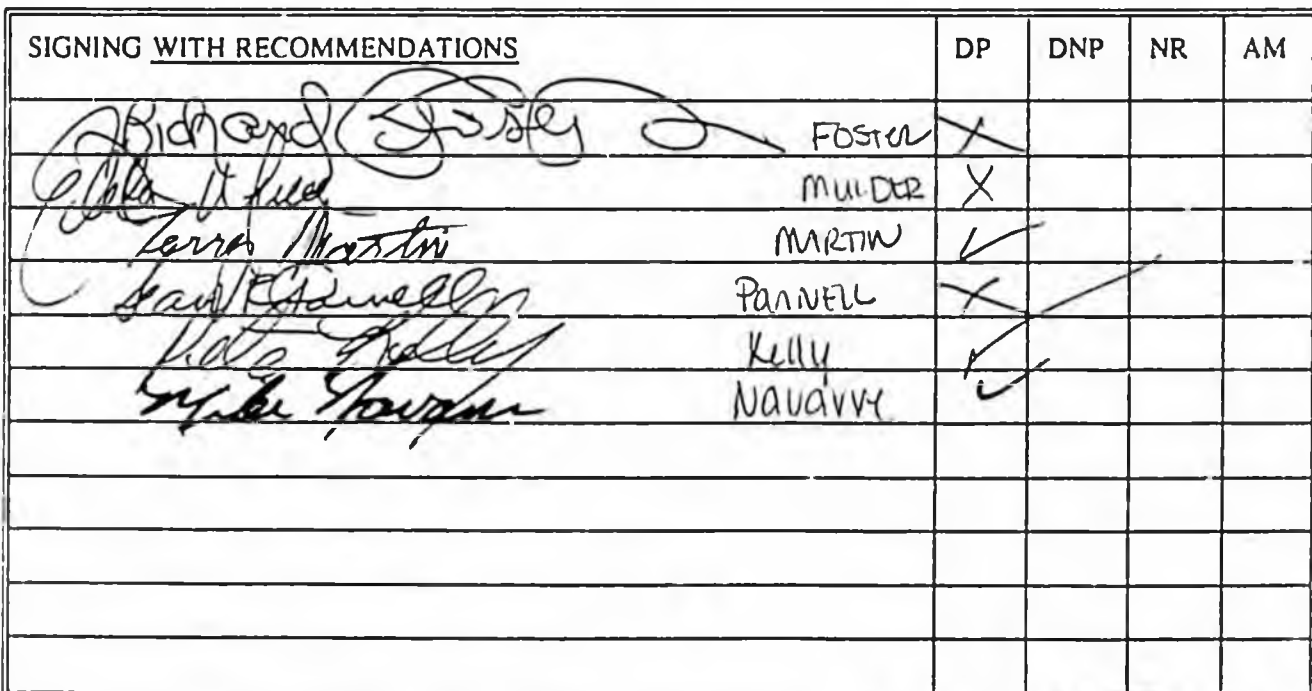 SIGNING WITH RECOMMENDATIONS DP DNP NR AM
Richard Foster FOSTER X
MULDER X
Terry Martin MARTIN ✓
Sean R Parnell PARNELL X
Kelly Kelly ✓
Mike Navarre Navarre ✓